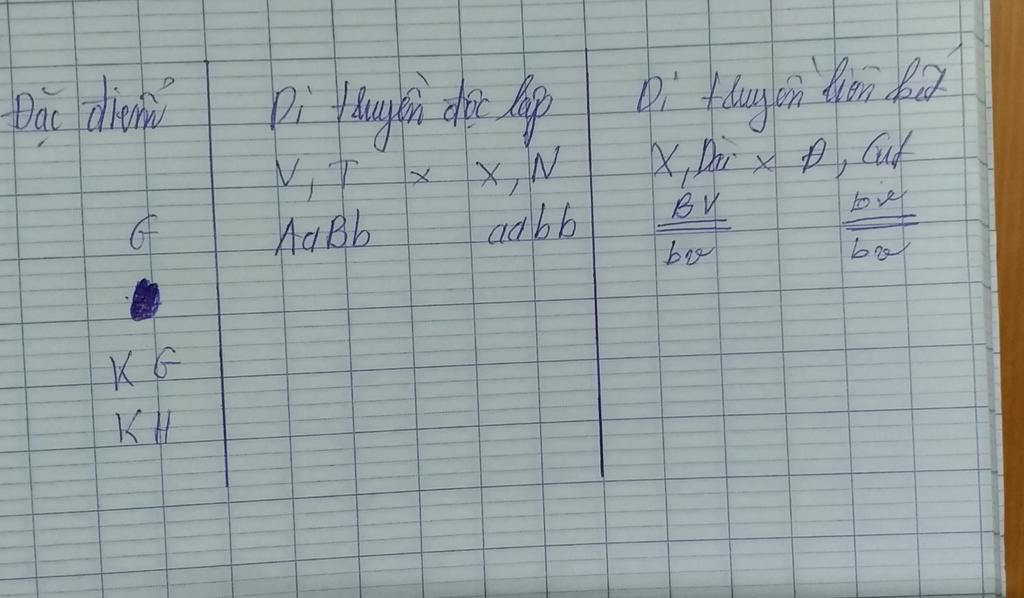 Đặc điểm
Di truyền độc lập
Di truyền liên kết
V, T x X, N
X, Dài x Đ, Cụt
G
AaBb aabb
BV bv
bv bv
K G
K H